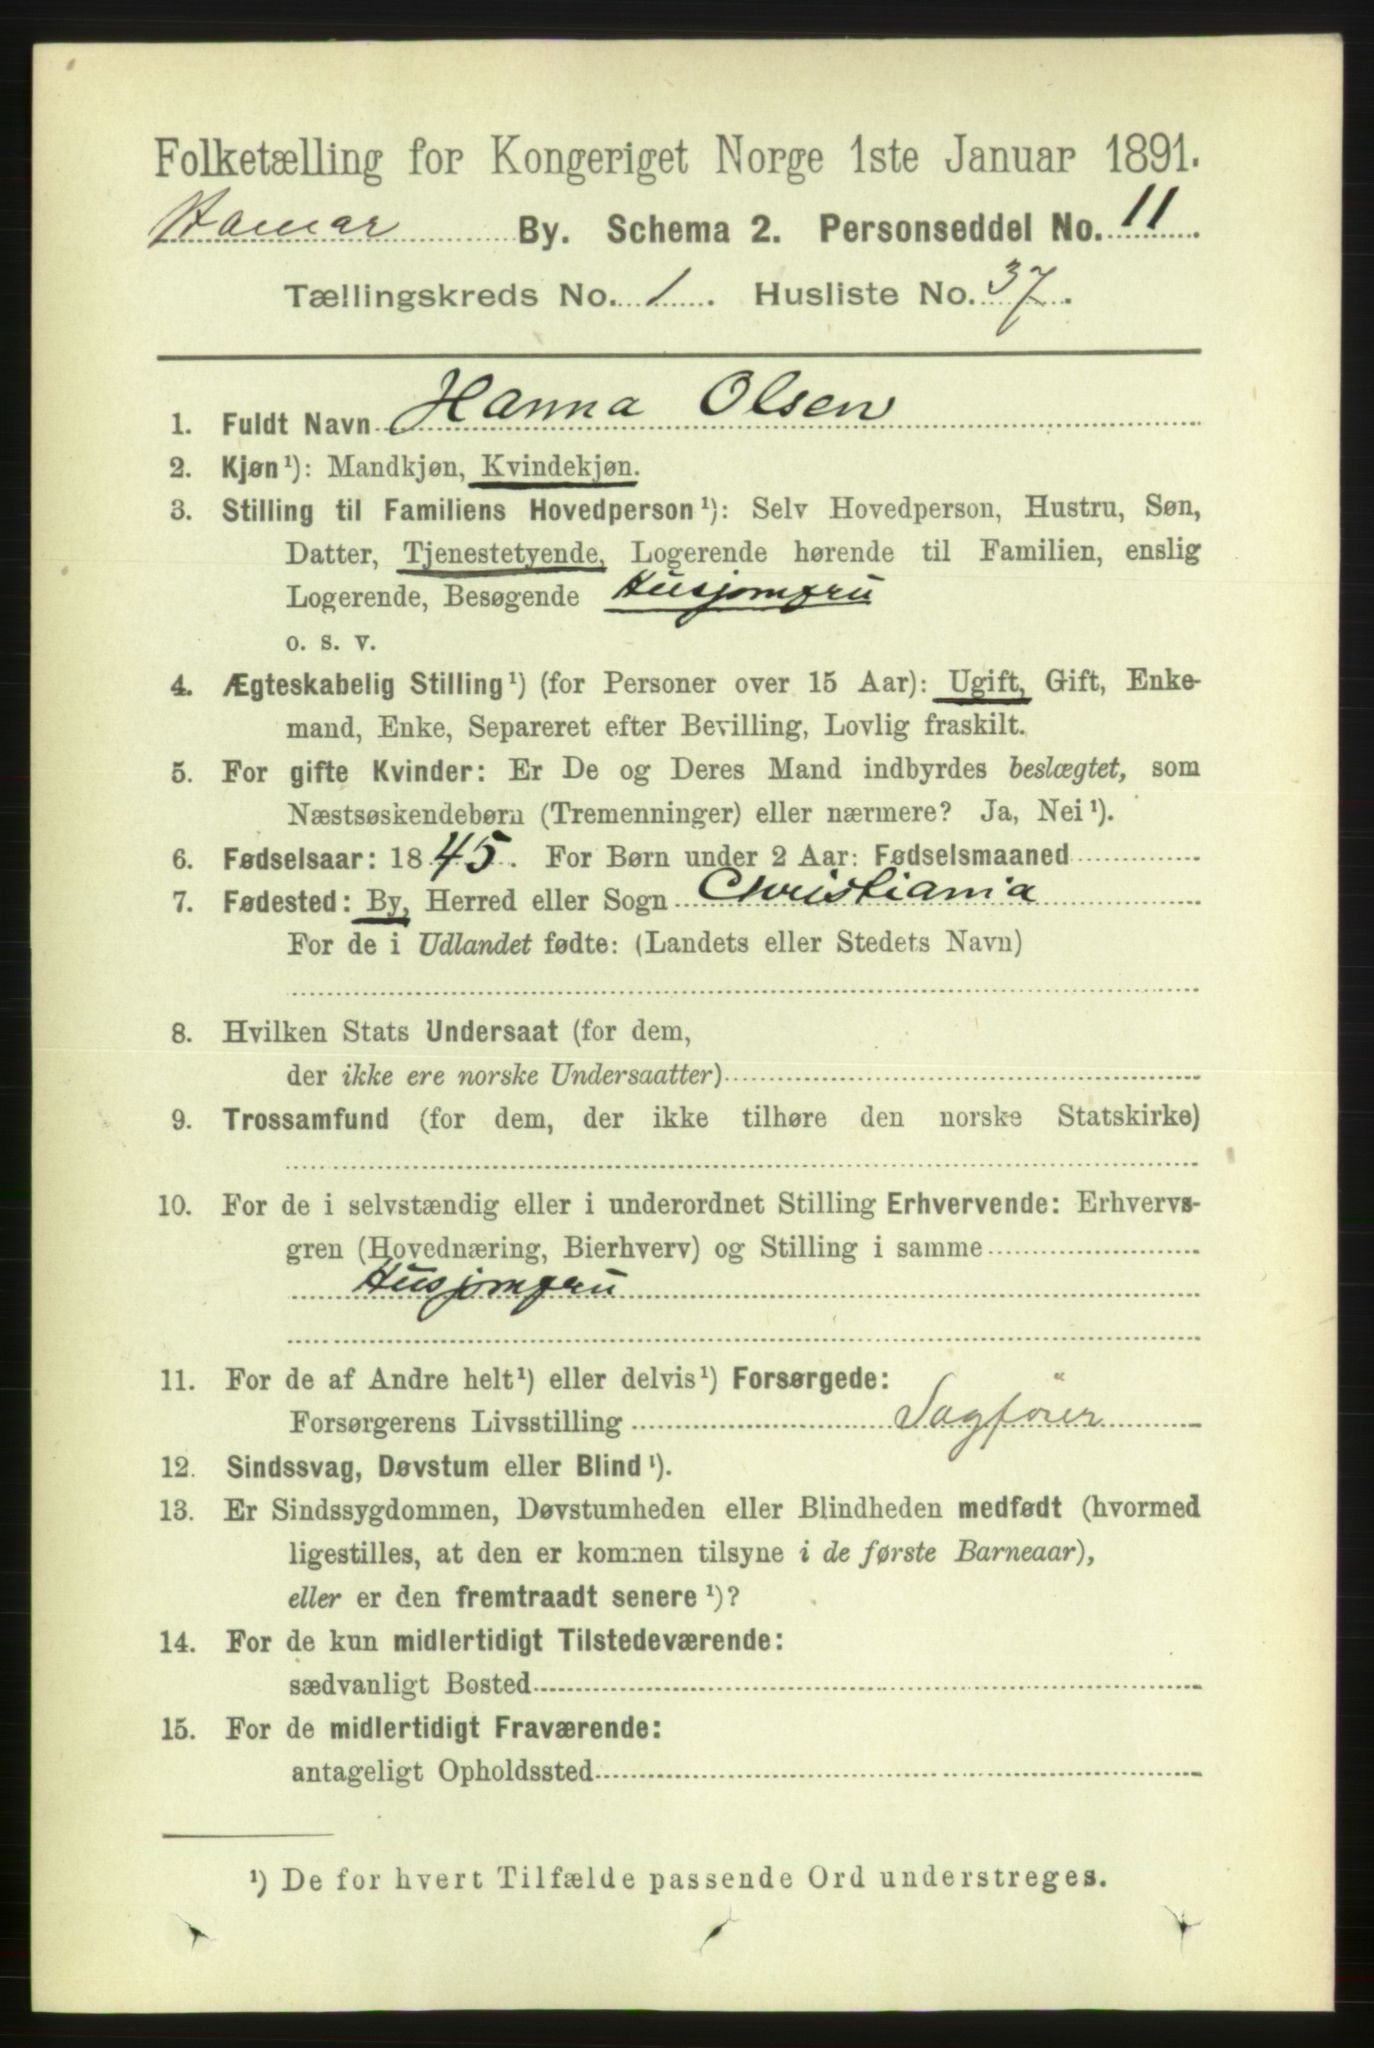 Folketælling for Kongeriget Norge 1ste Januar 1891.
Hamar By. Schema 2. Personseddel No. 11
Tællingskreds No. 1. Husliste No. 37.
1. Fuldt Navn Hanna Olsen
2. Kjøn¹): Mandkjøn, Kvindekjøn.
3. Stilling til Familiens Hovedperson¹): Selv Hovedperson, Hustru, Søn,
Datter, Tjenestetyende, Logerende hørende til Familien, enslig
Logerende, Besøgende Husjomfru
o. s. v.
4. Ægteskabelig Stilling¹) (for Personer over 15 Aar): Ugift, Gift, Enke-
mand, Enke, Separeret efter Bevilling, Lovlig fraskilt.
5. For gifte Kvinder: Er De og Deres Mand indbyrdes beslægtet, som
Næstsøskendebørn (Tremenninger) eller nærmere? Ja, Nei¹).
6. Fødselsaar: 1845. For Børn under 2 Aar: Fødselsmaaned
7. Fødested: By, Herred eller Sogn Christiania
For de i Udlandet fødte: (Landets eller Stedets Navn)
8. Hvilken Stats Undersaat (for dem,
der ikke ere norske Undersaatter)
9. Trossamfund (for dem, der ikke tilhøre den norske Statskirke)
10. For de i selvstændig eller i underordnet Stilling Erhvervende: Erhvervs-
gren (Hovednæring, Bierhverv) og Stilling i samme
Husjomfru
11. For de af Andre helt¹) eller delvis¹) Forsørgede:
Forsørgerens Livsstilling Sagförer
12. Sindssvag, Døvstum eller Blind¹).
13. Er Sindssygdommen, Døvstumheden eller Blindheden medfødt (hvormed
ligestilles, at den er kommen tilsyne i de første Barneaar),
eller er den fremtraadt senere¹)?
14. For de kun midlertidigt Tilstedeværende:
sædvanligt Bosted
15. For de midlertidigt Fraværende:
antageligt Opholdssted
¹) De for hvert Tilfælde passende Ord understreges.